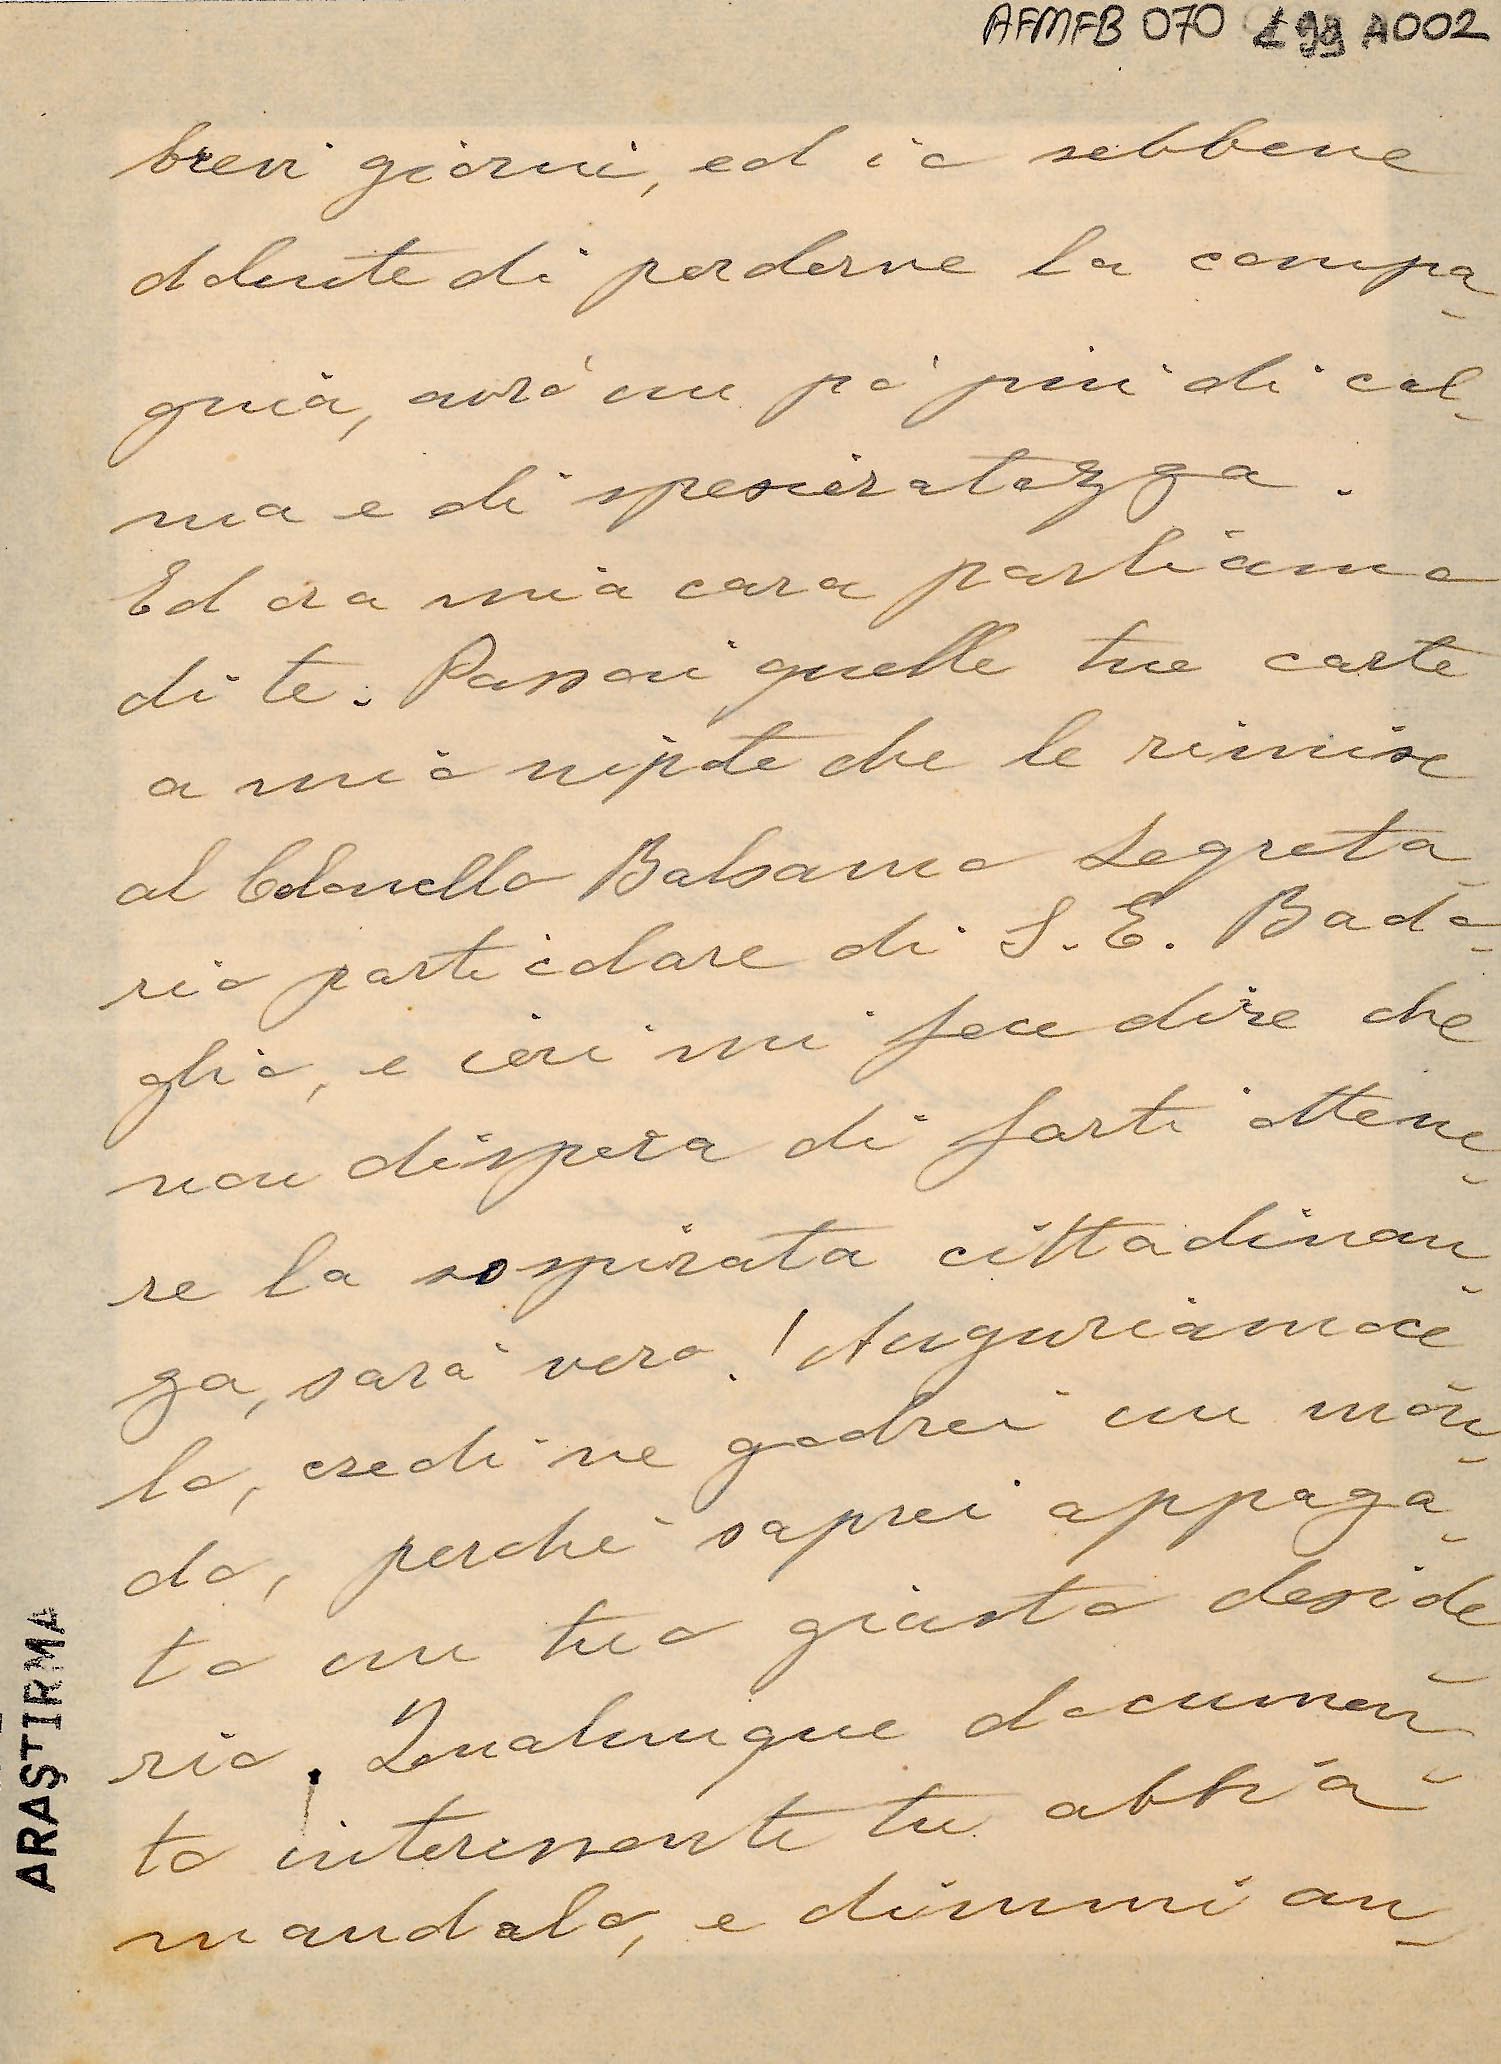 AFMFB 070 199 A002
brevi giorni, ed io sebbene
dolente di perderne la compa-
gnia, avrò un pò più di cal-
ma e di spensieratezza.
Ed ora mia cara parliamo
di te. Passai quelle tue carte
a mio nipote che le rimise
al Colonello Balsamo Segreta-
rio particolare di S. E. Bado-
glio, e ieri mi fece dire che
non dispera di farti ottene-
re la sospirata cittadinan-
za, sarà vero! Auguriamoce
lo, credi ne godrei un mon-
do, perchè saprei appaga-
to un tuo giusto deside-
rio. Qualunque documen-
to interessante tu abbia
mandalo, e dimmi an-
ARAŞTIRMA